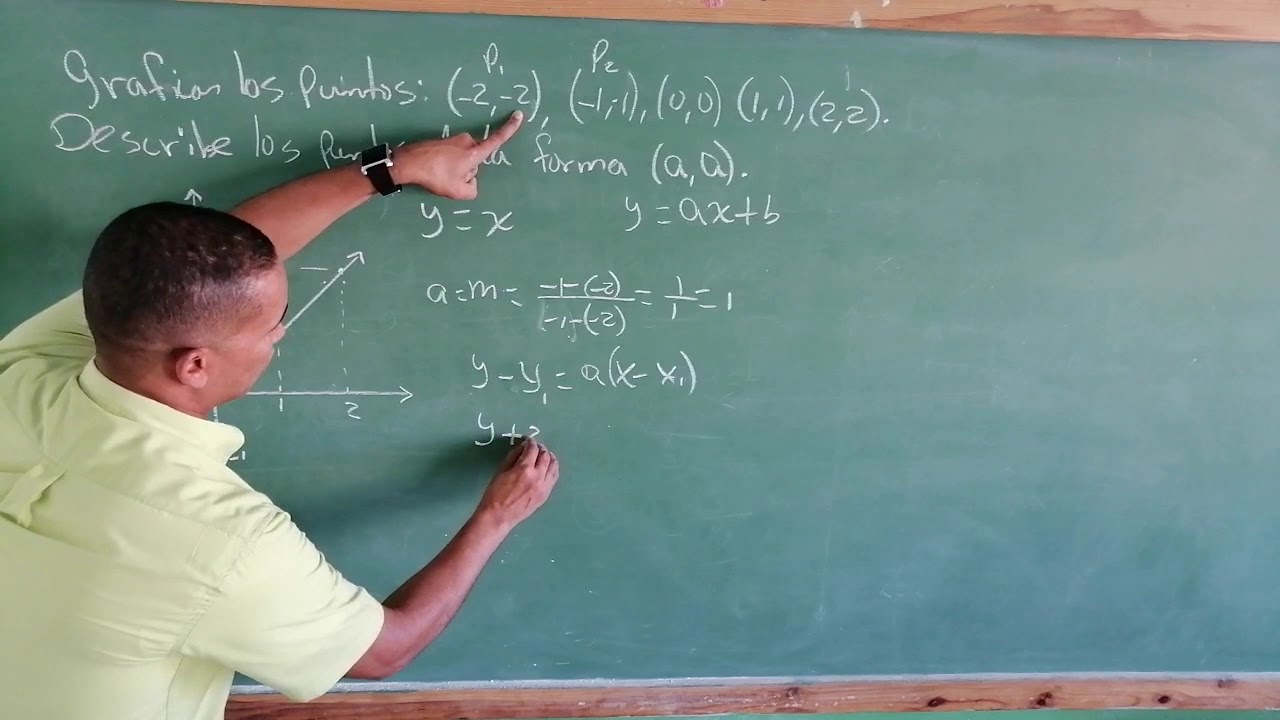 P₁ P₂
Grafican los puntos: (-2,-2), (-1,-1), (0,0) (1,1), (2,2).
Describe los forma (a,a).
y = x y = ax+b
a=m= -1-(-2) / -1-(-2) = 1/1 = 1
y - y₁ = a(x - x₁)
y + 2
1 2
-1